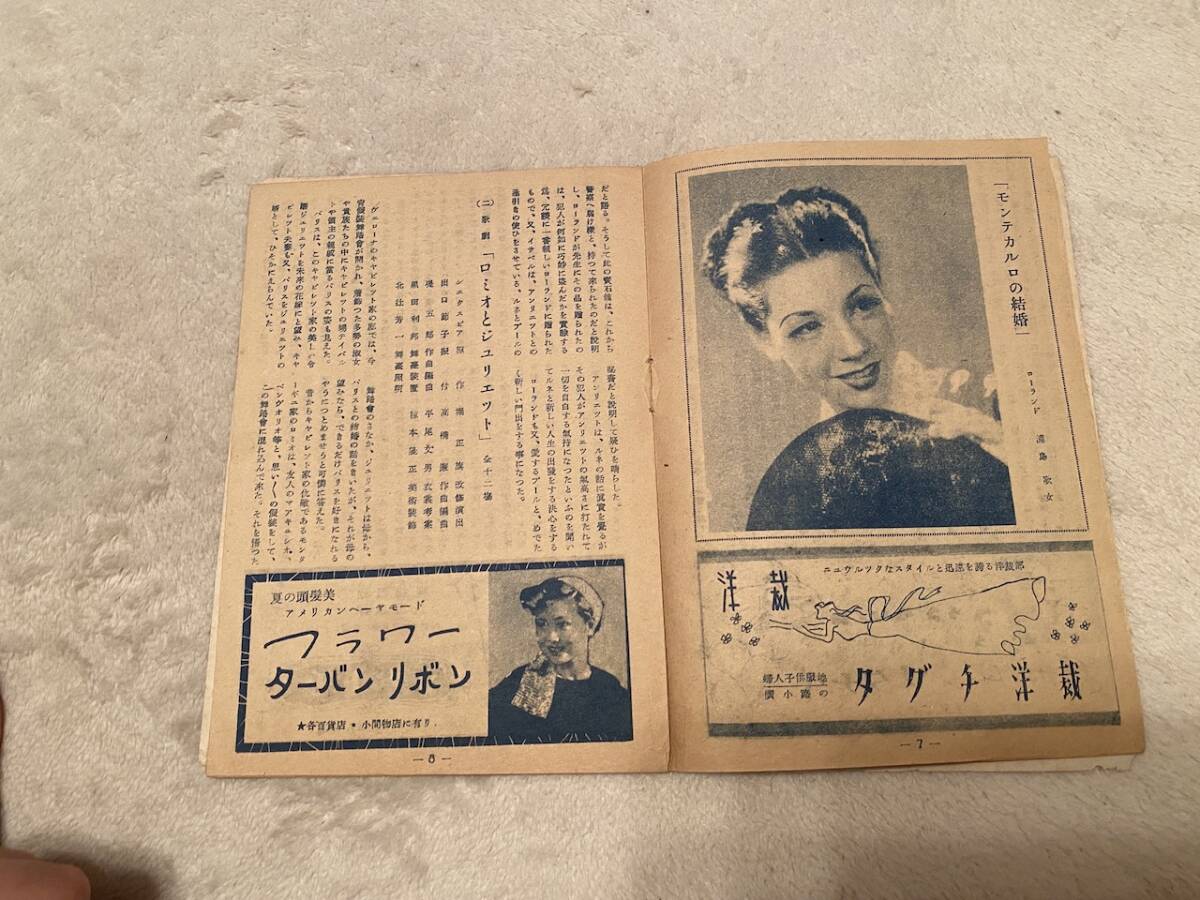 「モンテカルロの結婚」
ローランド
浦島 歌女
ニュウルックなスタイルと迅速を誇る洋裁部
洋裁
タグチ洋裁
婦人子供服地
の小路横
—7—
だと語る。そうして此の寶石箱は、これから
警察へ届け樣と、持つて來られたのだと說明
し、ローランドが先生にその品を贈られたの
は、犯人が何如に巧妙に盗んだかを實驗する
爲、冗談に一番親しいローランドに贈られた
もので、又、イサベルは、アンリエットとの
逢引きの使ひをさせている、ルネとブールの
秘書だと說明して疑ひを晴らした。
アンリエットは、ルネの話に眞實を覺るが
その犯人がアンリエットの氣高さに打たれて
一切を自白する氣持になつたといふのを聞い
てルネと新しい人生の出發をする決心をする
ローランドも又、愛するブールと、めでた
く新しい門出をする事になつた。
(二) 歌劇 「ロミオとジュリエット」 全十二場
シエクスピア 原作
堀 正旗 改修演出
出口節子 振付
高橋 廉 作曲編曲
礒 五郎 作曲編曲
平尾丈男 衣裳考案
黒田利邦 舞臺裝置
椋本隆正 美術裝飾
北辻芳一 舞臺照明
ヴェローナのキヤピレツト家の庭では、今
宵假裝舞踏會が開かれ、着飾つた多勢の淑女
や貴族たちの中にキヤピレツトの甥テイバル
トや領主の親戚に當るパリスの姿も見えた。
パリスは、このキヤピレツト家の美しい令
孃ジユリエツトを未來の花嫁にと望み、キヤ
ピレツト夫妻も又、パリスをジユリエツトの
婿として、ひそかにえらんでいた。
舞踏會のさなか、ジユリエツトは母から、
パリスとの結婚の話をきいたが、それが母の
望みなら、できるだけパリスを好きになれる
やうにつとめませうと可憐に答えた。
昔からキヤピレツト家の仇敵であるモンタ
ーギユ家のロミオは、友人のマアキユシオ、
ベンヴオリオ等と、思い〱の假裝をして、
この舞踏會に混れ込んで來た。それを悟つた
夏の頭髪美
アメリカンヘーヤモード
フラワー
ターバンリボン
★各百貨店・小間物店に有り.
—8—